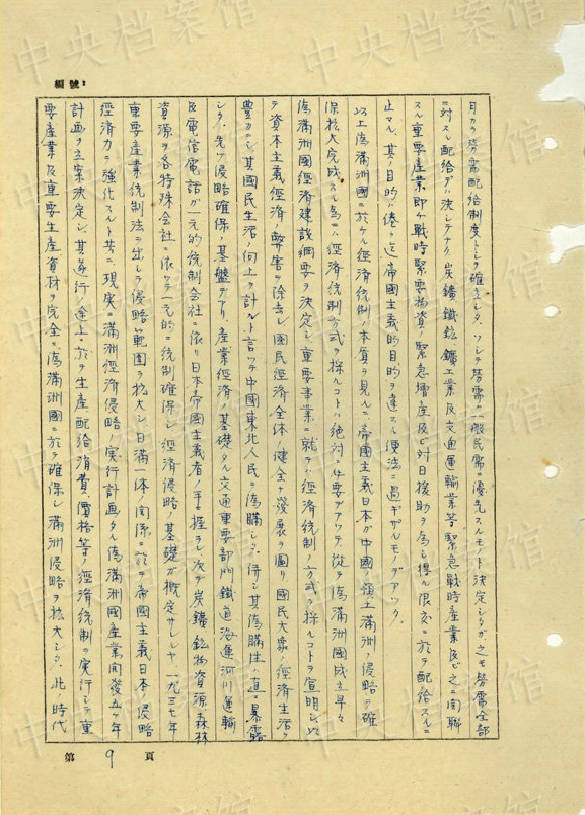 編號:
月カラ労需配給制度ヲ確立シタ、ソシテ労需ハ一般民需ニ優先スルモノト決定シタガ之モ労需全部
ニ対スル配給デハ決シテナク、炭鑛鐵鉱鑛工業及交通運輸業等緊急戦時産業及之ニ関聯
スル重要産業即チ戦時緊要物資ノ緊急増産及ビ対日援助ヲ為シ得ル限度ニ於テ配給スルニ
止マル、其ノ目的ハ倦ク迄帝國主義的目的ヲ達スル便法ニ過ギザルモノデアツタ。
以上偽満洲國ニ於ケル經済統制ノ本質ヲ見ルニ帝國主義日本ガ中國ノ領土満洲ノ侵略ヲ確
保拡大完成スル為ニハ經済統制方式ヲ採ルコトハ絶対ニ必要デアツテ、從テ偽満洲國成立早々
偽満洲國經済建設綱要ヲ決定シ重要事業ニ就テハ經済統制ノ方式ヲ採ルコトヲ宣明シ、以
テ資本主義經済ノ弊害ヲ除去シ國民經済全体ノ健全ナ發展ヲ圖リ國民大衆ノ經済生活ヲ
豊カニシ其國民生活ノ向上ヲ計ルト言ツテ中國東北人民ニ偽瞞シタ、併シ其偽瞞性ハ直ニ暴露
シタ、先ヅ侵略確保ノ基盤デアリ、産業經済ノ基礎タル交通重要部門鐵道海運河川運輸
及電信電話ガ一元的統制会社ニ依リ日本帝國主義者ノ手ニ握ラレ次デ炭鑛鉱物資源、森林
資源ヲ各特殊会社ニ依ツテ一元的ニ統制確保シ經済侵略ノ基礎ガ概定サレルヤ一九三七年
重要産業統制法ニ出シテ侵略ノ範囲ヲ拡大シ日満一体ノ関係ニ於テ帝國主義日本ノ侵略
經済力ニ強化スルト共ニ現実ニ満洲經済侵略ノ実行計画タル偽満洲國産業開發五ヶ年
計画ヲ立案決定シ、其遂行ノ途上ニ於テ生産配給消費、價格等ノ經済統制ヲ実行シテ重
要産業及重要生産資材ヲ完全ニ偽満洲國ニ於テ確保シ満洲侵略ヲ拡大シタ、此ノ時代
第 9 頁
中央档案馆